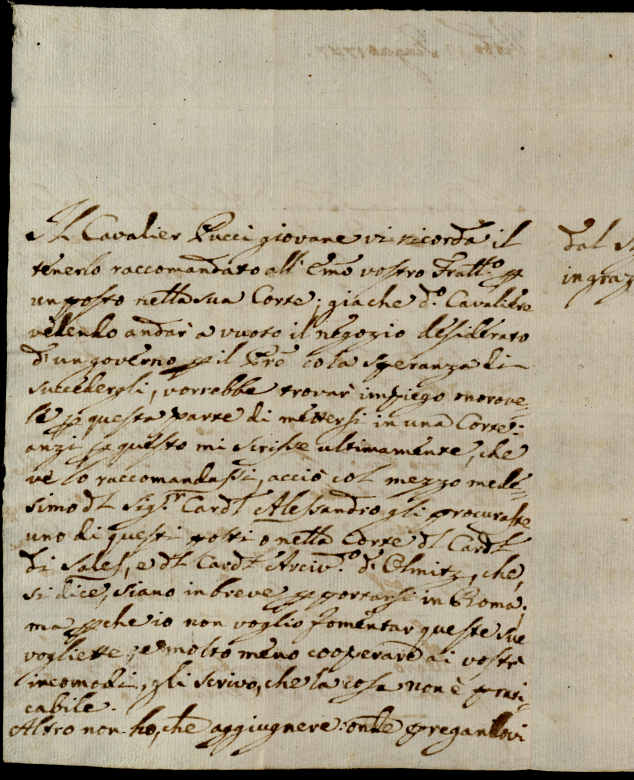 Il Cavalier Pucci giovane vi ricorda il
tenerlo raccomandato all' Emo vostro Fratt.o p
un posto nella sua Corte; giache d.o Cavaliere
vedendo andar a vuoto il negozio desiderato
d' un governo p il Pre co la speranza di
succedergli, vorrebbe trovar impiego onorove-
le p questa parte di mettersi in una Corte:
anzi p questo mi scrisse ultimamente, che
ve lo raccomandassi, acciò col mezzo mede-
simo dl Sig.r Cardl Alessandro gli procuraste
uno di questi posti o nella Corte dl Cardl
di Sales, e dl Cardl Arciv.o d' Olmitz, che,
si dice, siano in breve p portarsi in Roma;
ma pche io non voglio fomentar queste sue
vogliette, e molto meno cooperare ai vostri
incomodi, gli scrivo, che la cosa non è prati-
cabile.
Altro non ho, che aggiugnere: onde pregandovi
dal
ingraz